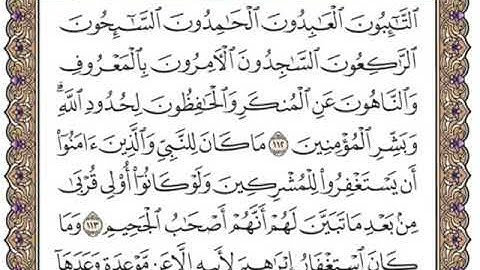 ٱلتَّٰٓئِبُونَ ٱلْعَٰبِدُونَ ٱلْحَٰمِدُونَ ٱلسَّٰٓئِحُونَ
ٱلرَّٰكِعُونَ ٱلسَّٰجِدُونَ ٱلْءَامِرُونَ بِٱلْمَعْرُوفِ
وَٱلنَّاهُونَ عَنِ ٱلْمُنكَرِ وَٱلْحَٰفِظُونَ لِحُدُودِ ٱللَّهِۗ
وَبَشِّرِ ٱلْمُؤْمِنِينَ ١١٢ مَا كَانَ لِلنَّبِيِّ وَٱلَّذِينَ ءَامَنُوٓا۟
أَن يَسْتَغْفِرُوا۟ لِلْمُشْرِكِينَ وَلَوْ كَانُوٓا۟ أُو۟لِى قُرْبَىٰ
مِنۢ بَعْدِ مَا تَبَيَّنَ لَهُمْ أَنَّهُمْ أَصْحَٰبُ ٱلْجَحِيمِ ١١٣ وَمَا
كَانَ ٱسْتِغْفَارُ إِبْرَٰهِيمَ لِأَبِيهِ إِلَّا عَن مَّوْعِدَةٍ وَعَدَهَآ